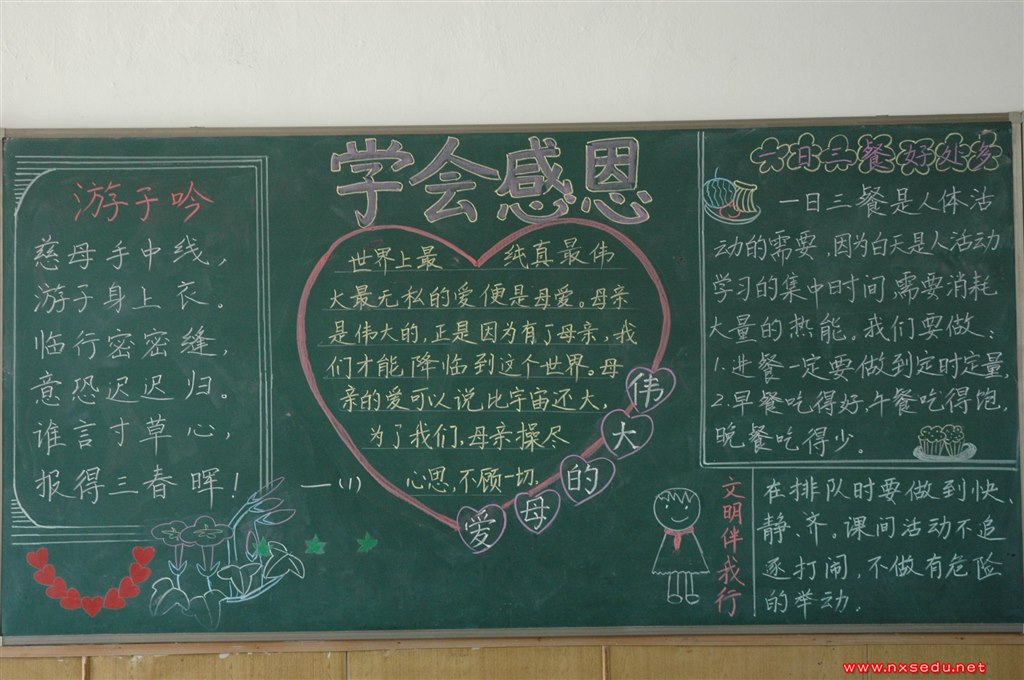 学会感恩
游子吟
慈母手中线，
游子身上衣。
临行密密缝，
意恐迟迟归。
谁言寸草心，
报得三春晖！
一(1)
世界上最 纯真最伟
大最无私的爱便是母爱。母亲
是伟大的，正是因为有了母亲，我
们才能降临到这个世界。母
亲的爱可以说比宇宙还大，
为了我们，母亲操尽
心思，不顾一切。
爱母的大伟
六日三餐好处多
一日三餐是人体活
动的需要，因为白天是人活动
学习的集中时间，需要消耗
大量的热能。我们要做：
1.进餐一定要做到定时定量，
2.早餐吃得好，午餐吃得饱，
晚餐吃得少。
文明伴我行
在排队时要做到快、
静、齐。课间活动不追
逐打闹，不做有危险
的举动。
www.nxsedu.net